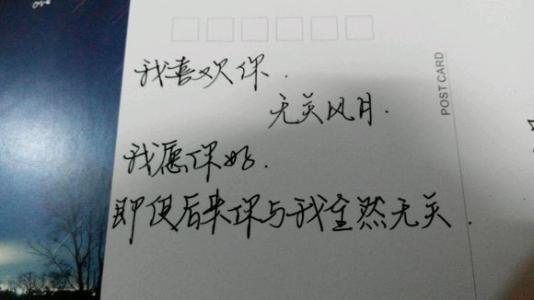 我喜欢你.
无关风月.
我愿你好.
即使后来你与我全然无关.
POST CARD